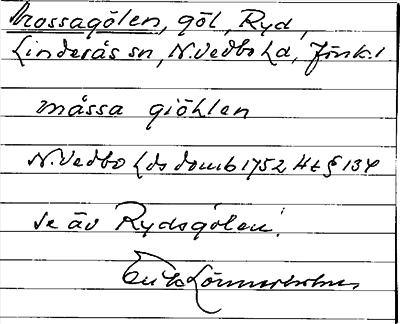 Mossagölen, göl, Ryd,
Linderås sn, N. Vedbo hd, Jönk. l
måssa giöhlen
N. Vedbo hds domb 1752 Ht § 134
se äv Rydsgölen!
Erik Lönnerholm